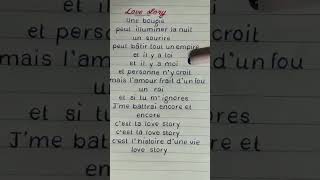 Love story
Une bougie
peut illuminer la nuit
un sourire
peut bâtir tout un empire
et il y a toi
et il y a moi
et personne n'y croit
mais l'amour frait d'un fou
un roi
et si tu m'ignores
J'me battrai encore et
encore
c'est ta love story
c'est ta love story
c'est l'histoire d'une vie
love story